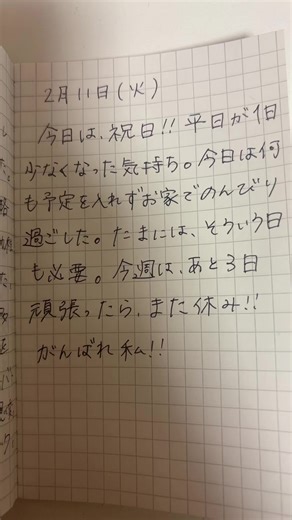 2月11日(火)
今日は、祝日!! 平日が1日
少なくなった気持ち。今日は何
も予定を入れずお家でのんびり
過ごした。たまには、そういう日
も必要。今週は、あと3日
頑張ったら、また休み!!
がんばれ私!!